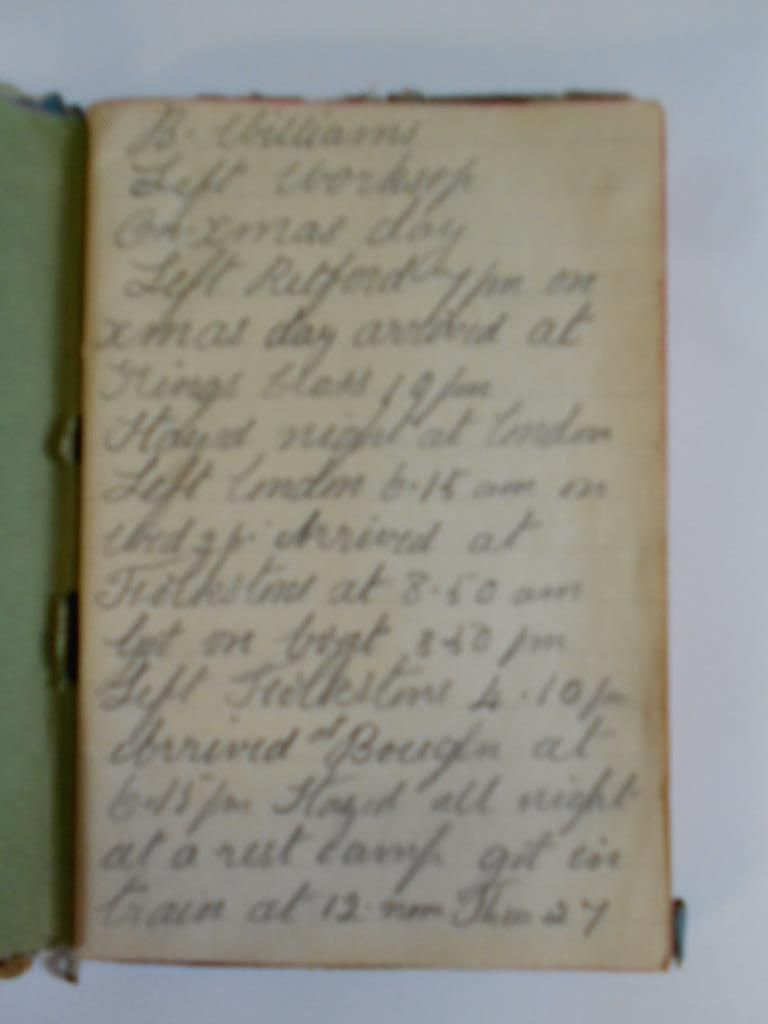 B. Williams
Left Worksop
On xmas day
Left Retford 7 pm on
xmas day arrived at
Kings Cross 10 pm
Stayed night at London
Left London 6.15 am on
Wed Arrived at
Folkstone at 8.50 am
Got on boat 3.50 pm
Left Folkstone 4.10 pm
Arrived at at
6.15 pm Stayed all night
at a rest camp got in
train at 12. noon Thur 27